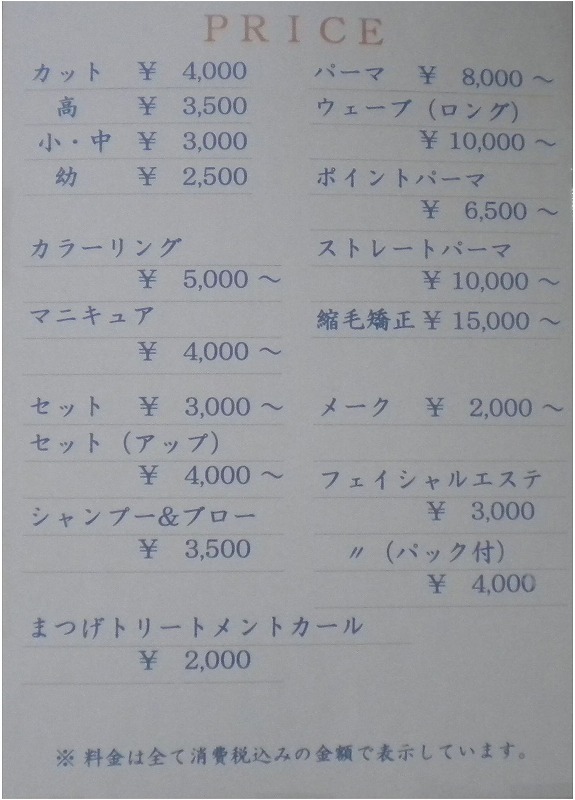 PRICE
カット ¥ 4,000
高 ¥ 3,500
小・中 ¥ 3,000
幼 ¥ 2,500
カラーリング
¥ 5,000 〜
マニキュア
¥ 4,000 〜
セット ¥ 3,000 〜
セット（アップ）
¥ 4,000 〜
シャンプー&ブロー
¥ 3,500
まつげトリートメントカール
¥ 2,000
パーマ ¥ 8,000 〜
ウェーブ（ロング）
¥ 10,000 〜
ポイントパーマ
¥ 6,500 〜
ストレートパーマ
¥ 10,000 〜
縮毛矯正 ¥ 15,000 〜
メーク ¥ 2,000 〜
フェイシャルエステ
¥ 3,000
〃（パック付）
¥ 4,000
※ 料金は全て消費税込みの金額で表示しています。